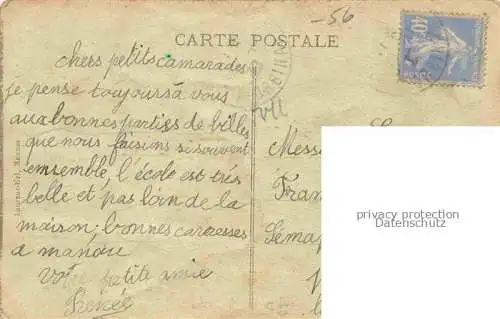 -56
CARTE POSTALE
40c
POSTES
chers petits camarades
je pense toujours à vous
aux bonnes parties de billes
que nous faisions si souvent
ensemble, l'école est très
belle et pas loin de la
maison; bonnes caresses
a
votre petite amie
Renée
VII
Mess
Fran
Séma
privacy protection
Datenschutz